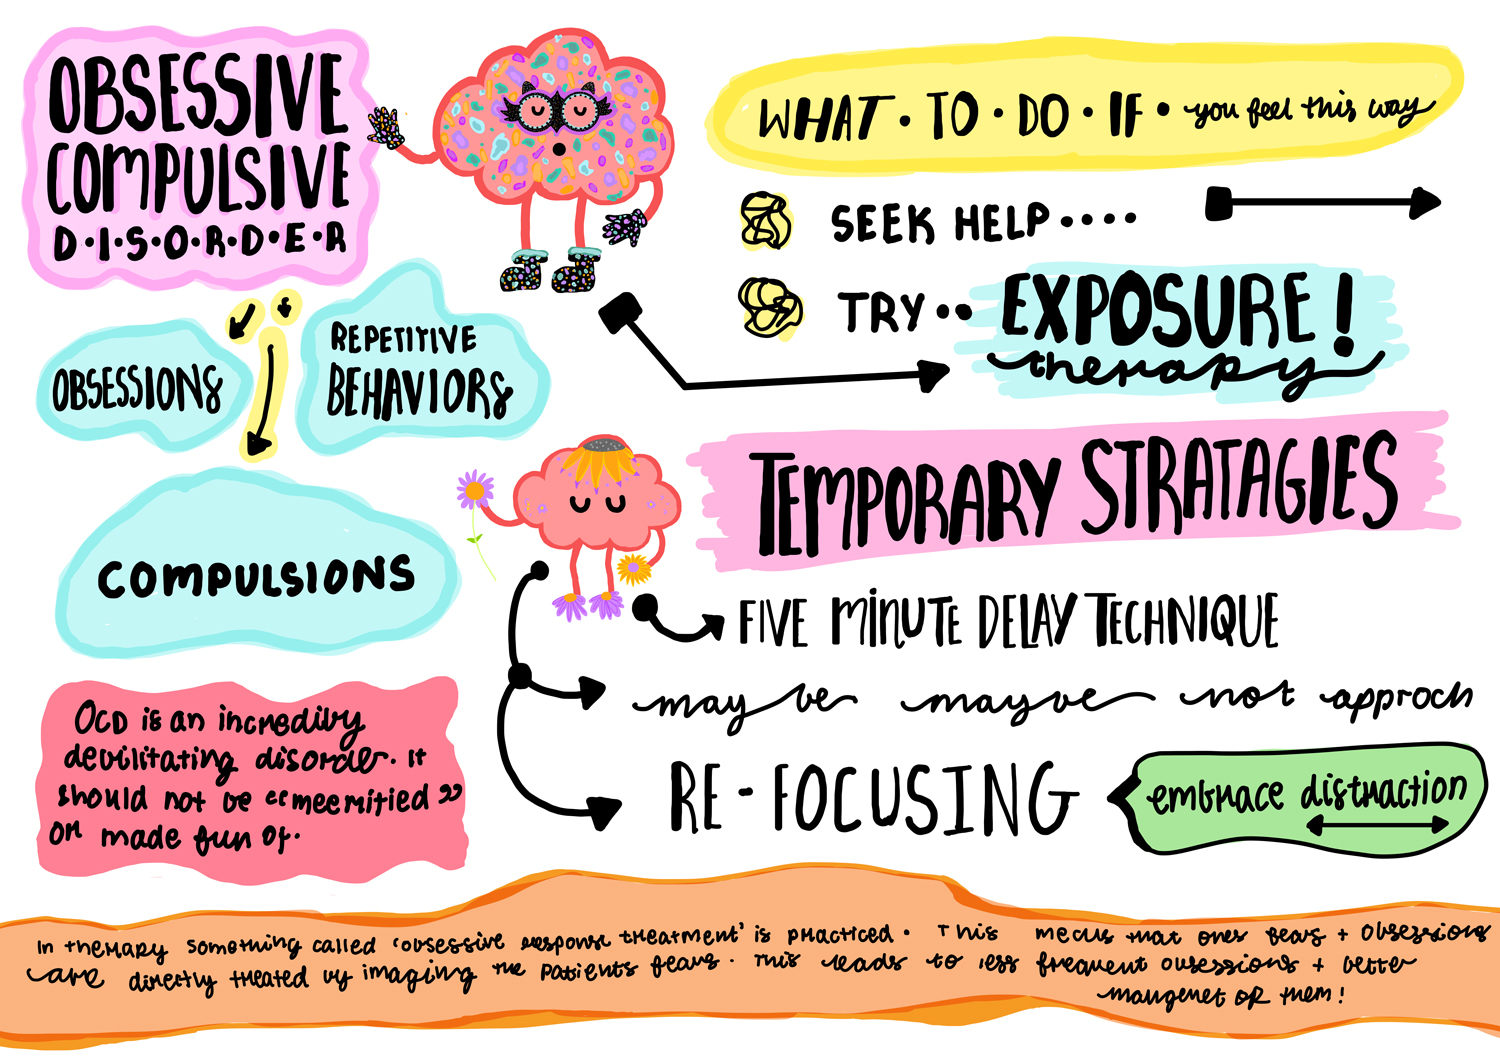 OBSESSIVE
COMPULSIVE
D·I·S·O·R·D·E·R
OBSESSIONS
REPETITIVE
BEHAVIORS
COMPULSIONS
OCD is an incredibly
debilitating disorder. It
should not be "meemified"
or made fun of.
WHAT · TO · DO · IF · you feel this way
SEEK HELP....
TRY.. EXPOSURE!
therapy
TEMPORARY STRATAGIES
FIVE MINUTE DELAY TECHNIQUE
maybe maybe not approch
RE-FOCUSING
embrace distraction
In therapy something called 'obsessive response treatment' is practiced. This means that ones fears + obsessions
are directly treated by imaging the patients fears. This leads to less frequent obsessions + better
of them!